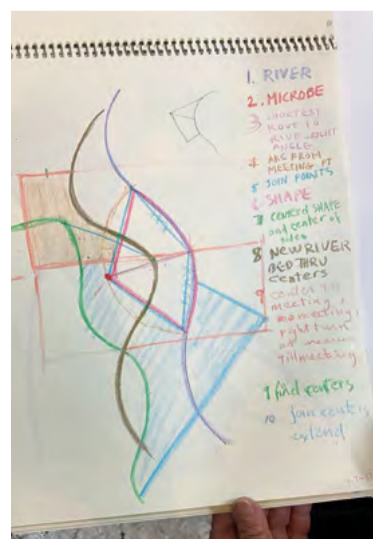 1. RIVER
2. MICROBE
3 SHORTEST
ROUTE TO
RIVER RIGHT
ANGLE
4 ARC FROM
MEETING PT
5 JOIN POINTS
6 SHAPE
7 CENTER SHAPE
and center of
sides
8 NEW RIVER
BED THRU
centers
9 center till
meeting,
meeting,
right turn
at
till meeting
9 find centers
10 Join centers
extend